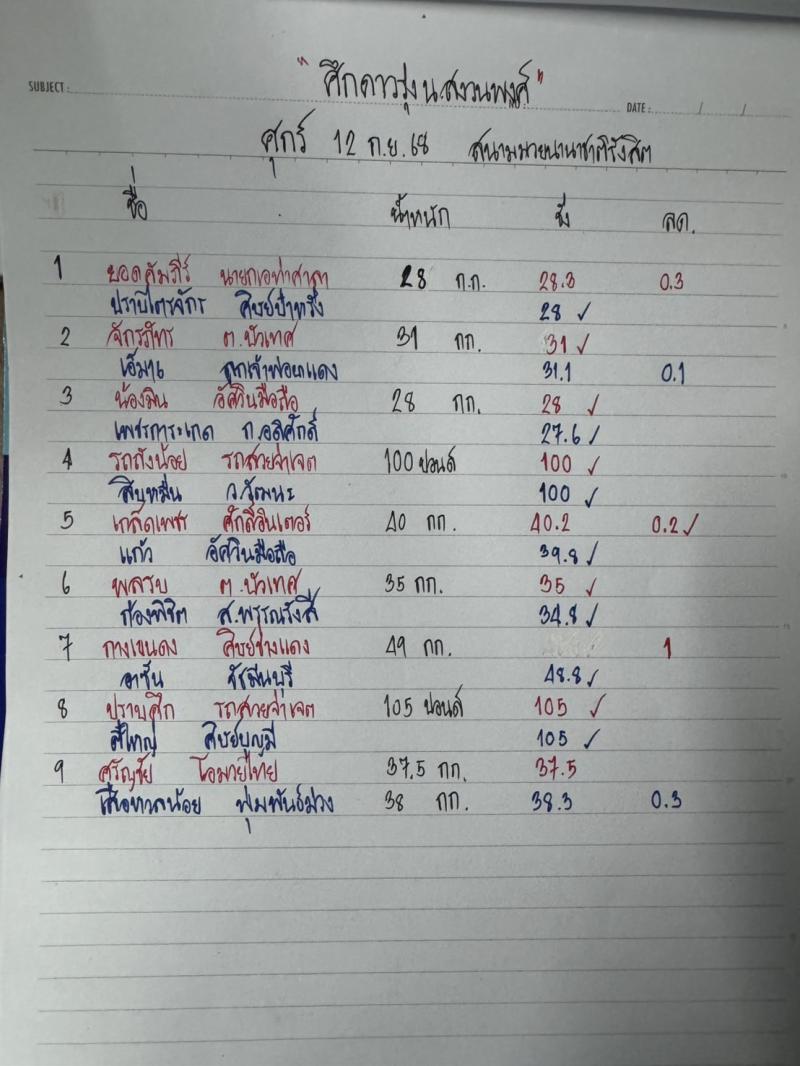 SUBJECT :
"ศึกดาวรุ่ง น.สงวนพงศ์"
DATE : / /
ศุกร์ 12 ก.ย. 68 สนามมวยนานาชาติรังสิต
ชื่อ น้ำหนัก ชั่ง ลด.
1 ยอดคัมภีร์ นายกเอท่าศาลา 28 ก.ก. 28.3 0.3
ปราบไตรจักร ศิษย์ป๋าทริ่ง 28 ✓
2 จักรภัทร ต.บัวเทศ 31 กก. 31 ✓
ลูกเจ้าพ่อแดง 31.1 0.1
3 น้องมิน อัศวินมือถือ 28 กก. 28 ✓
เพชรการะเกด ก.อดิศักดิ์ 27.6 ✓
4 รถถังน้อย รถสวยจ่าเจต 100 ปอนด์ 100 ✓
สิบหมื่น ว.วัฒนะ 100 ✓
5 เกล็ดเพชร ศักดิ์อินเตอร์ 40 กก. 40.2 0.2 ✓
แก้ว อัศวินมือถือ 39.8 ✓
6 พลรบ ต.บัวเทศ 35 กก. 35 ✓
ก้องพิชิต ส.พรรณรังสี 34.8 ✓
7 กางเขนดง ศิษย์ช่างแดง 49 กก. 1
อาชัน ชัชมีนบุรี 48.8 ✓
8 ปราบศึก รถสวยจ่าเจต 105 ปอนด์ 105 ✓
สี่ใหญ่ ศิษย์บุญมี 105 ✓
9 ศรัญชัย โอมวยไทย 37.5 กก. 37.5
พุ่มพันธ์ม่วง 38 กก. 38.3 0.3